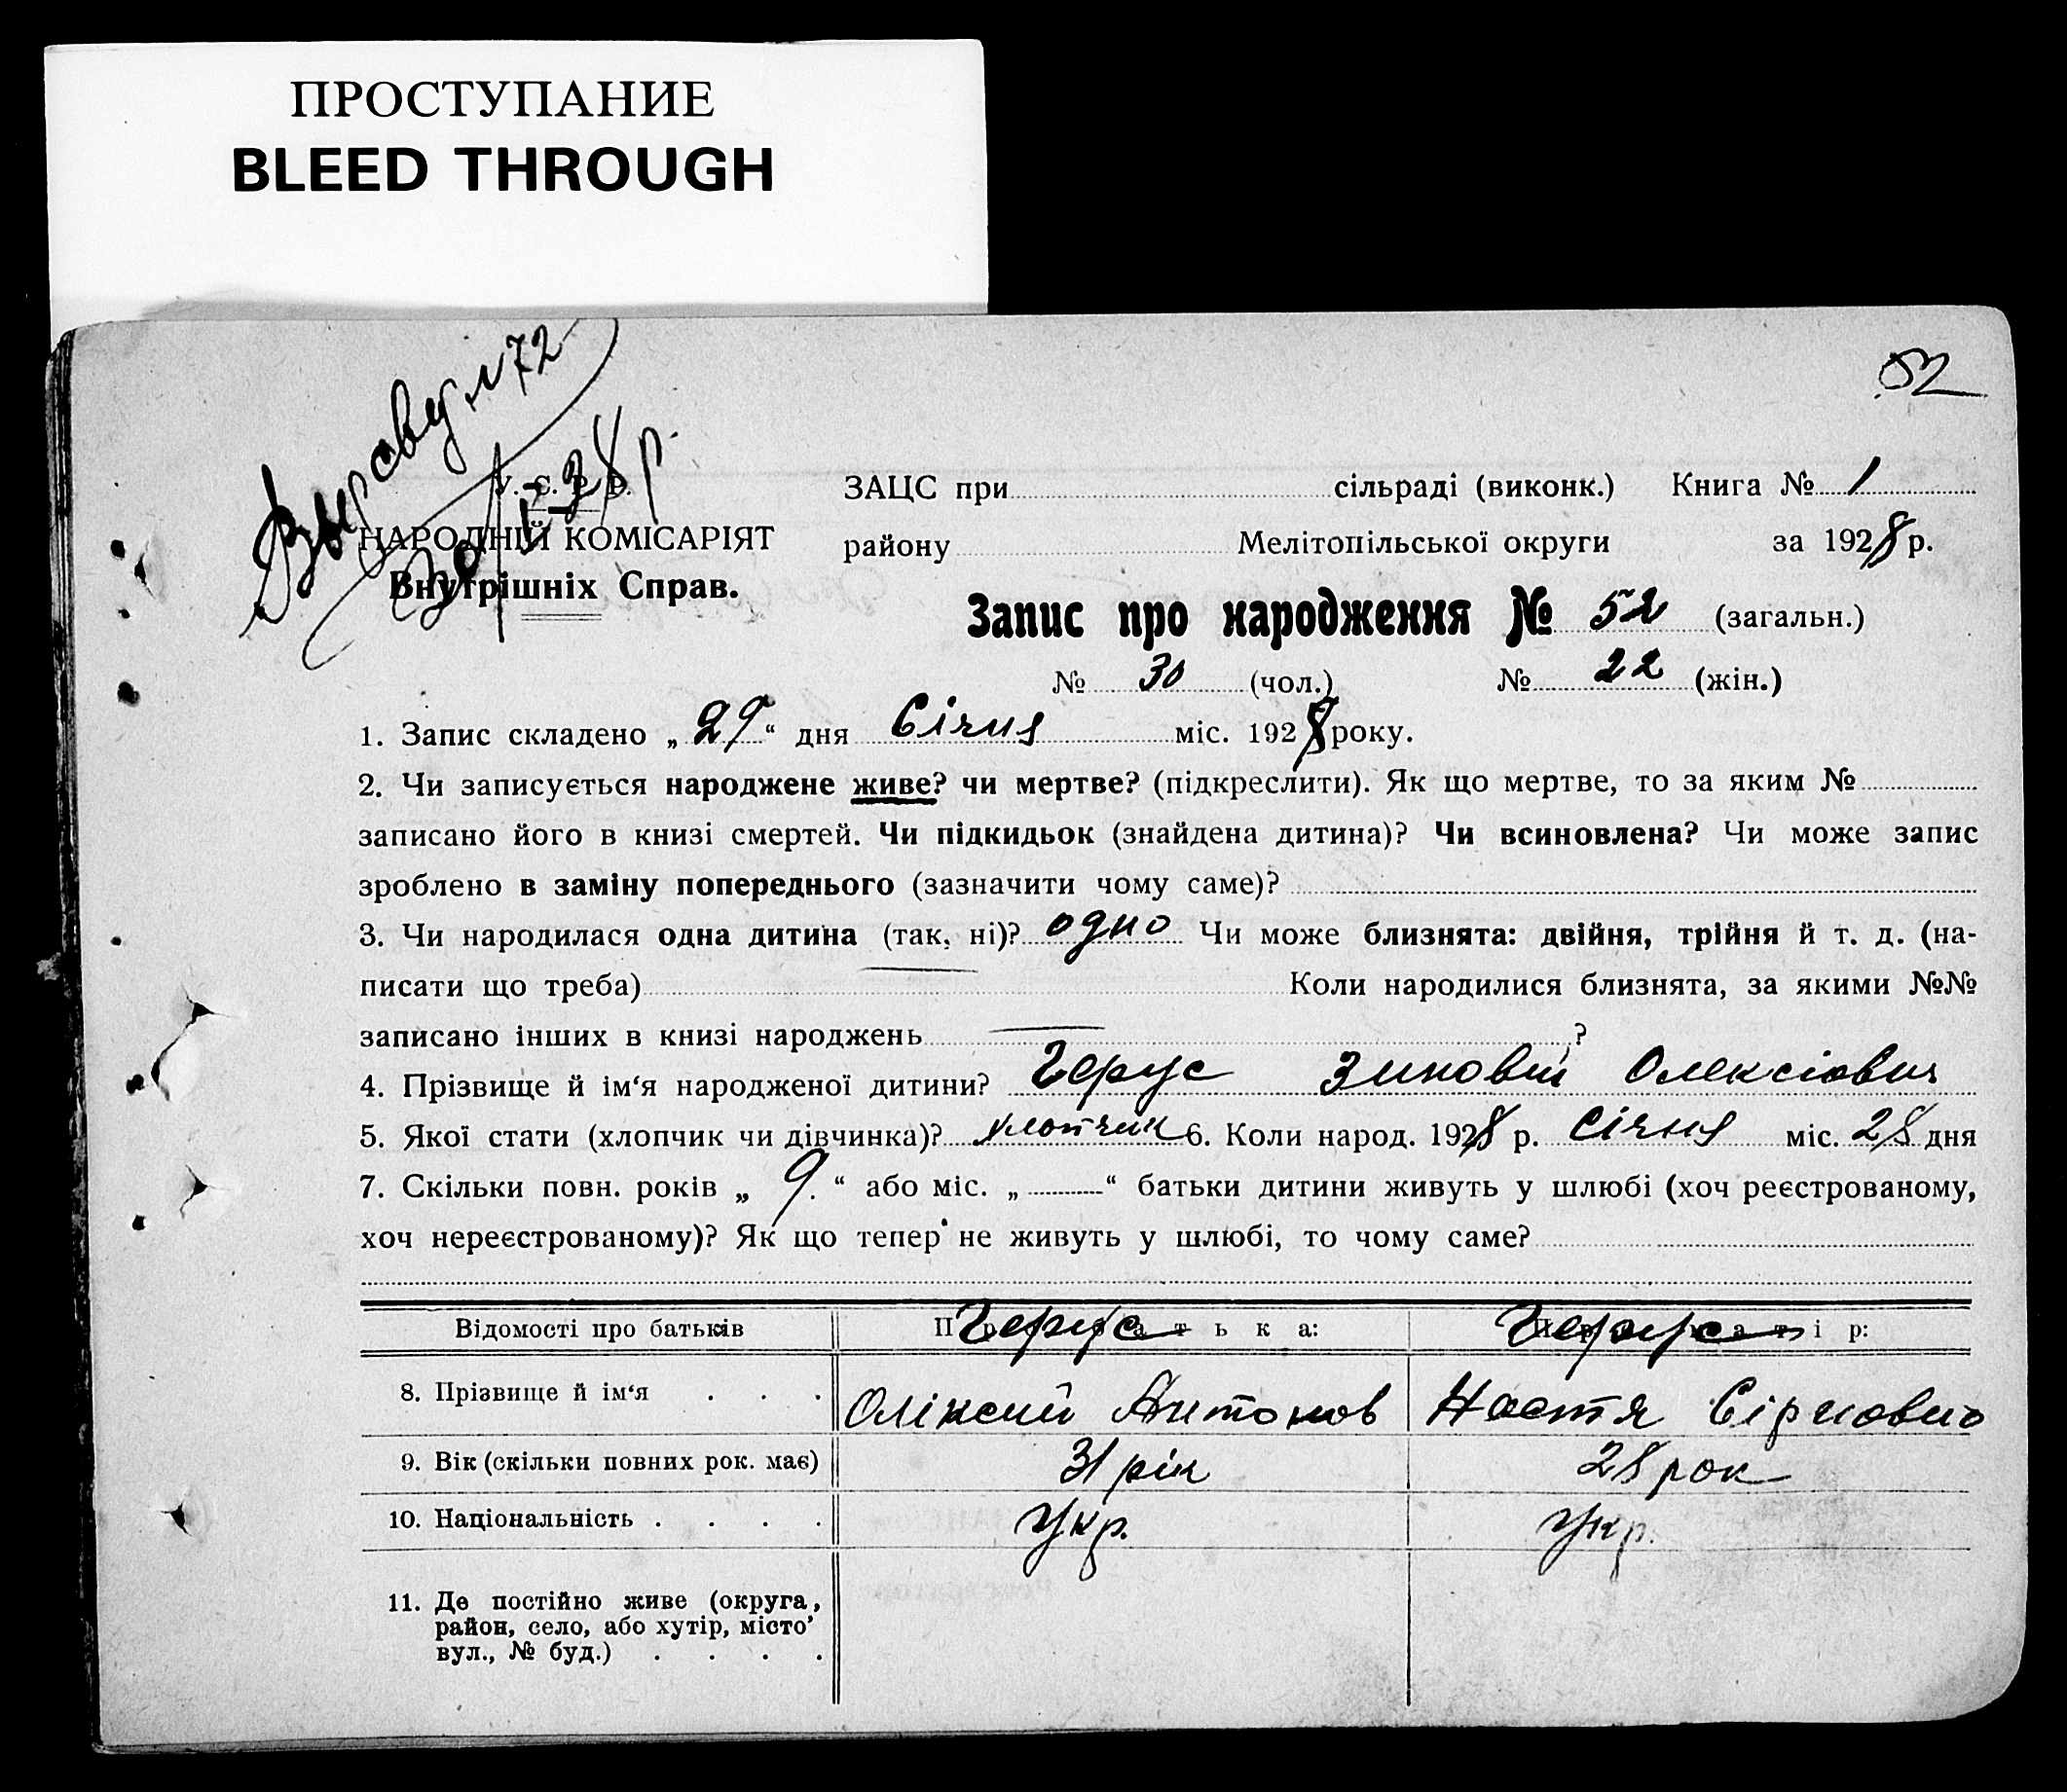 ПРОСТУПАНИЕ
BLEED THROUGH
52
№ 72
У. С. Р. Р.
НАРОДНІЙ КОМІСАРІЯТ
Внутрішніх Справ.
ЗАЦС при сільраді (виконк.) Книга № 1
району Мелітопільської округи за 1928 р.
Запис про народження № 52 (загальн.)
№ 30 (чол.) № 22 (жін.)
1. Запис складено „ 29 “ дня Січня міс. 1928 року.
2. Чи записується народжене живе? чи мертве? (підкреслити). Як що мертве, то за яким №
записано його в книзі смертей. Чи підкидьок (знайдена дитина)? Чи всиновлена? Чи може запис
зроблено в заміну попереднього (зазначити чому саме)?
3. Чи народилася одна дитина (так, ні)? одно Чи може близнята: двійня, трійня й т. д. (на-
писати що треба) — Коли народилися близнята, за якими №№
записано інших в книзі народжень — ?
4. Прізвище й ім‘я народженої дитини? Герус Зиновій Олексіович
5. Якої стати (хлопчик чи дівчинка)? хлопчик 6. Коли народ. 1928 р. Січня міс. 28 дня
7. Скільки повн. років „ 9. “ або міс. „ — “ батьки дитини живуть у шлюбі (хоч реєстрованому,
хоч нереєстрованому)? Як що тепер не живуть у шлюбі, то чому саме?
Відомості про батьків Про батька: Про матір:
Герус Герус
8. Прізвище й ім‘я . . . Оліксий Антонов Настя
9. Вік (скільки повних рок. має) 31 рік 28 рок
10. Національність . . . . Укр. Укр.
11. Де постійно живе (округа,
район, село, або хутір, місто’
вул., № буд.) . . . .